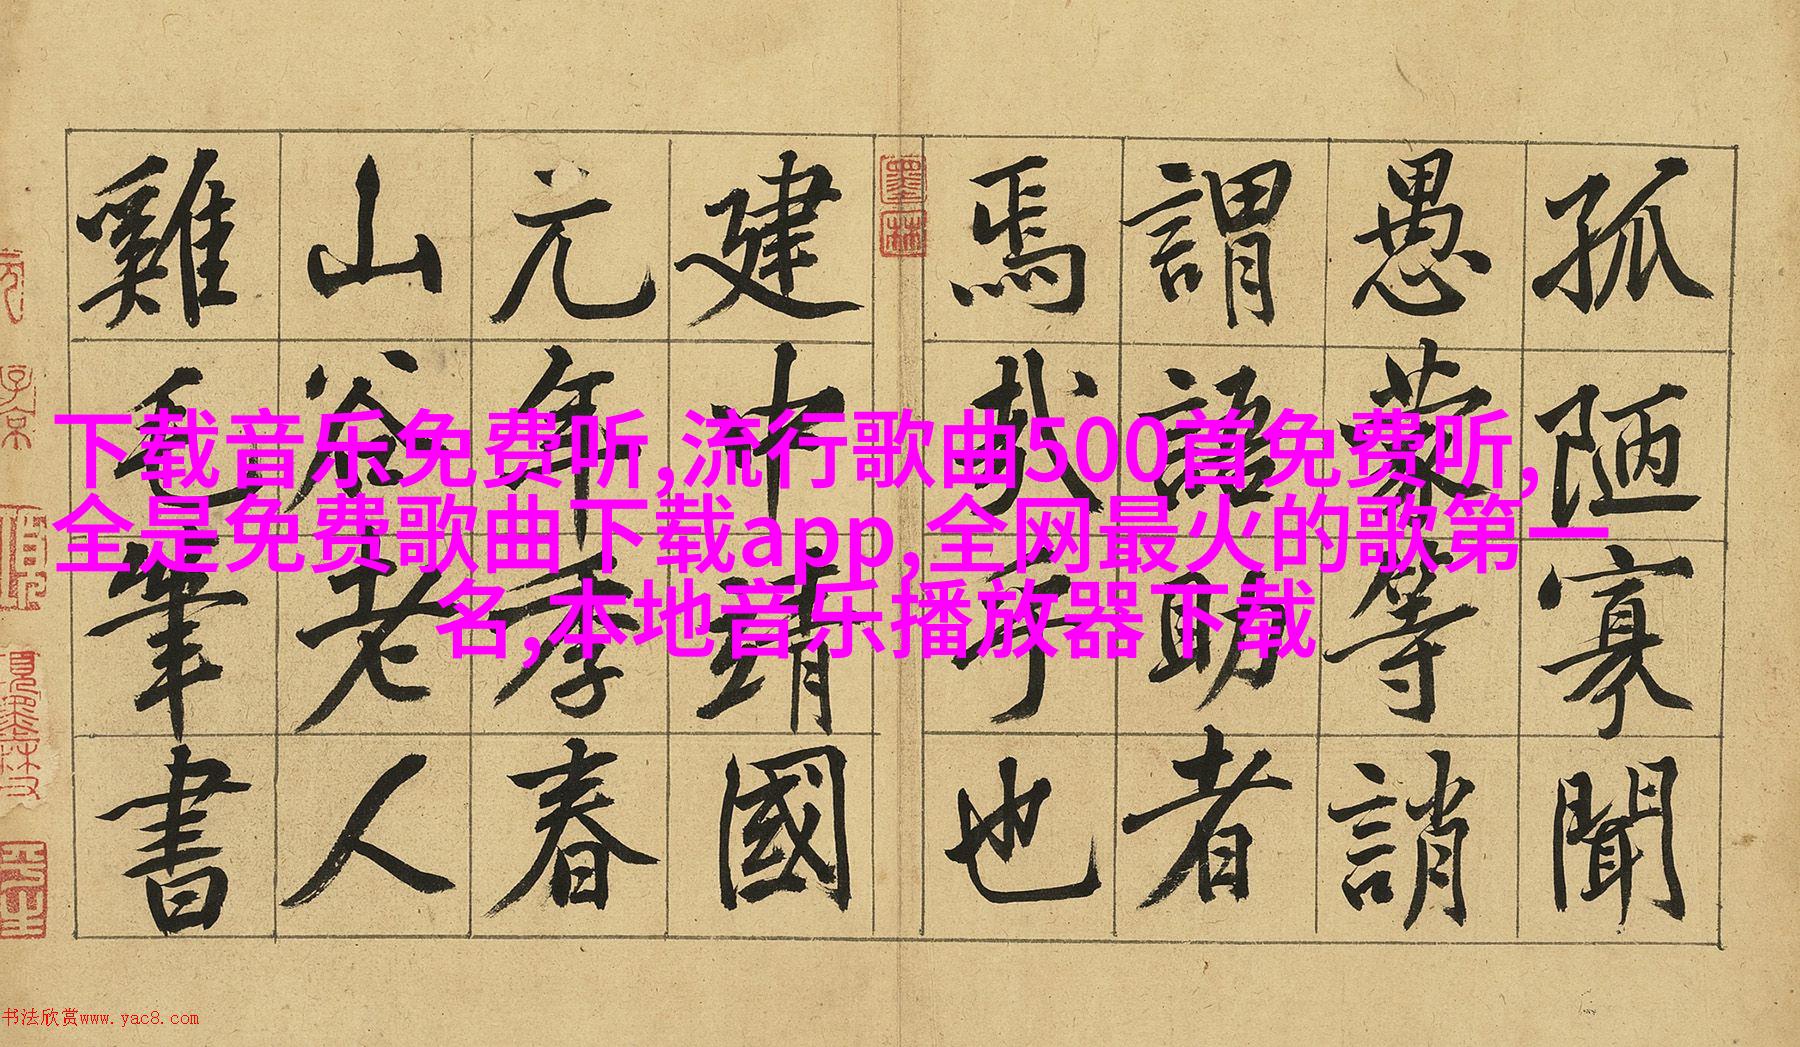 孤陋寡聞
愚蒙等誚
謂語助者
焉哉乎也
建中靖國
元年季春
山谷老人
雞毛筆書
墨林
子京
下载音乐免费听,流行歌曲500首免费听,
全是免费歌曲下载app,全网最火的歌第一
名,本地音乐播放器下载
书法欣赏www.yac8.com